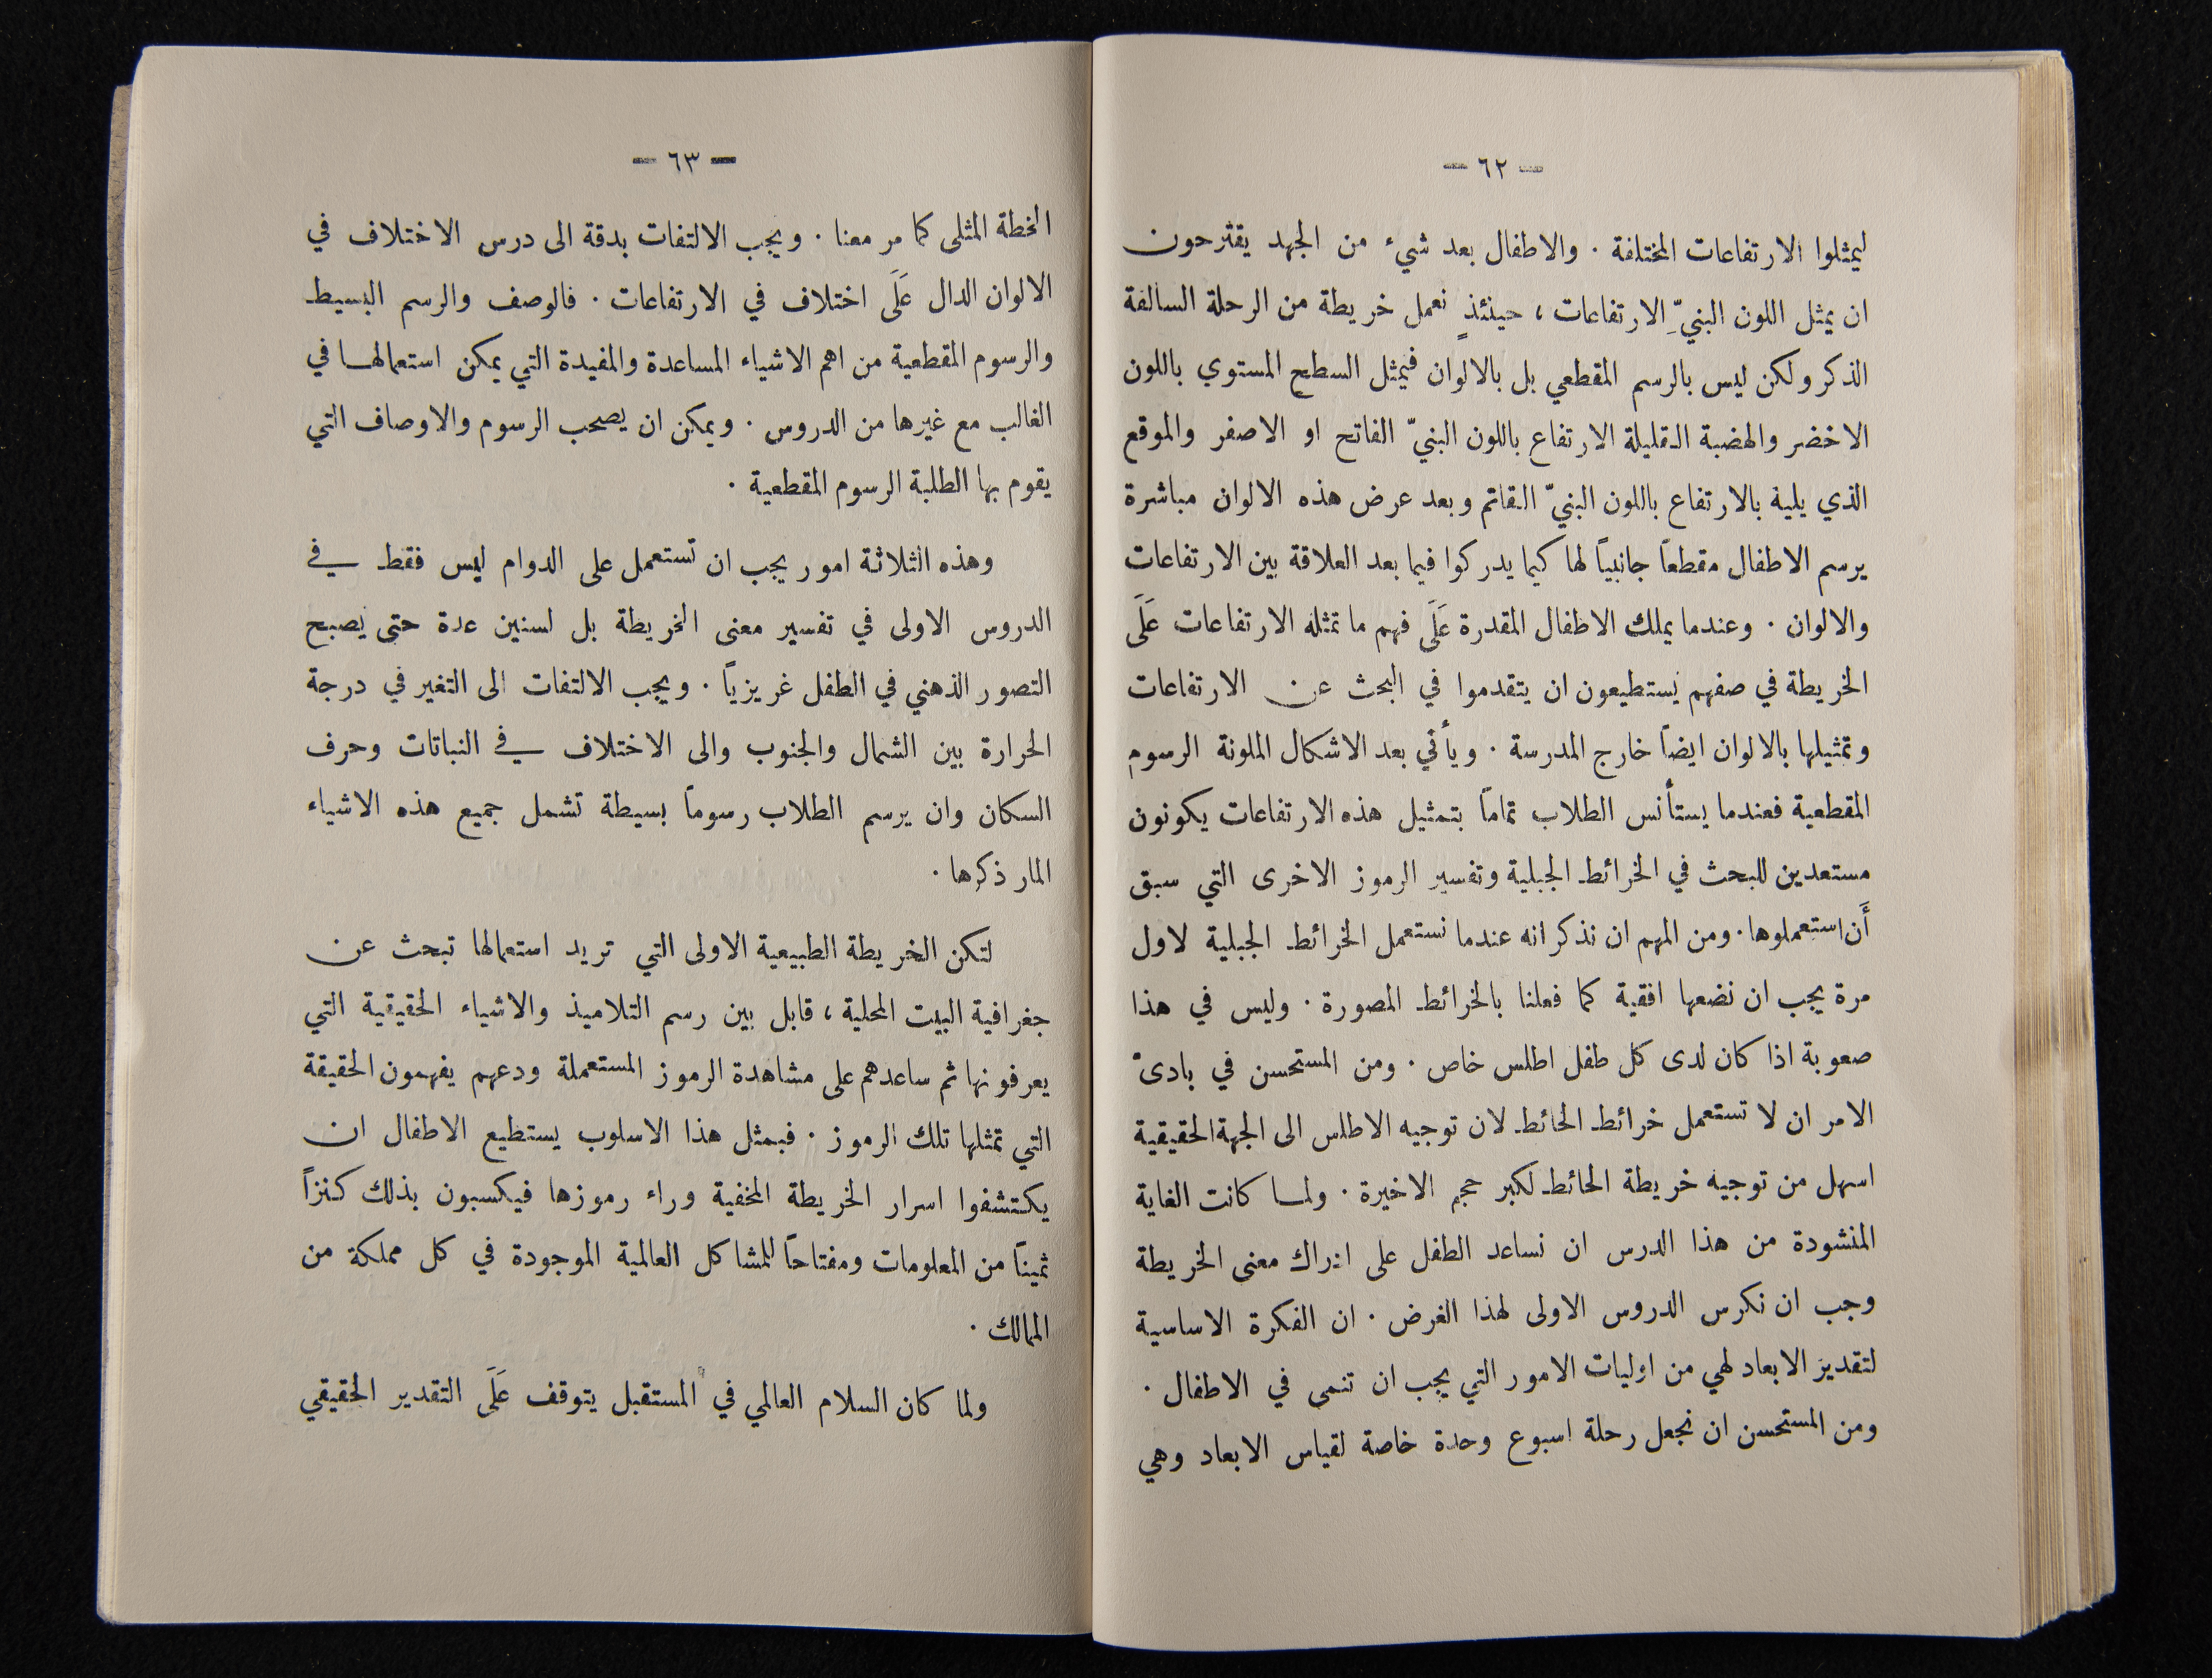 — ٦٢ —
ليمثلوا الارتفاعات المختلفة . والاطفال بعد شيء من الجهد يقترحون
ان يمثل اللون البنيّ الارتفاعات ، حينئذٍ نعمل خريطة من الرحلة السالفة
الذكر ولكن ليس بالرسم المقطعي بل بالالوان فيمثل السطح المستوي باللون
الاخضر والهضبة القليلة الارتفاع باللون البنيّ الفاتح او الاصفر والموقع
الذي يليه بالارتفاع باللون البنيّ القاتم وبعد عرض هذه الالوان مباشرة
يرسم الاطفال مقطعاً جانبياً لها كيما يدركوا فيما بعد العلاقة بين الارتفاعات
والالوان . وعندما يملك الاطفال المقدرة عَلَى فهم ما تمثله الارتفاعات عَلَى
الخريطة في صفهم يستطيعون ان يتقدموا في البحث عن الارتفاعات
وتمثيلها بالالوان ايضاً خارج المدرسة . ويأتي بعد الاشكال الملونة الرسوم
المقطعية فعندما يستأنس الطلاب تماماً بتمثيل هذه الارتفاعات يكونون
مستعدين للبحث في الخرائط الجبلية وتفسير الرموز الاخرى التي سبق
أَن استعملوها . ومن المهم ان نذكر انه عندما نستعمل الخرائط الجبلية لاول
مرة يجب ان نضعها افقية كما فعلنا بالخرائط المصورة . وليس في هذا
صعوبة اذا كان لدى كل طفل اطلس خاص . ومن المستحسن في بادئ
الامر ان لا تستعمل خرائط الحائط لان توجيه الاطلس الى الجهة الحقيقية
اسهل من توجيه خريطة الحائط لكبر حجم الاخيرة . ولما كانت الغاية
المنشودة من هذا الدرس ان نساعد الطفل على ادراك معنى الخريطة
وجب ان نكرس الدروس الاولى لهذا الغرض . ان الفكرة الاساسية
لتقدير الابعاد لهي من اوليات الامور التي يجب ان تنمى في الاطفال .
ومن المستحسن ان نجعل رحلة اسبوع وحدة خاصة لقياس الابعاد وهي
— ٦٣ —
الخطة المثلى كما مر معنا . ويجب الالتفات بدقة الى درس الاختلاف في
الالوان الدال عَلَى اختلاف في الارتفاعات . فالوصف والرسم البسيط
والرسوم المقطعية من اهم الاشياء المساعدة والمفيدة التي يمكن استعمالها في
الغالب مع غيرها من الدروس . ويمكن ان يصحب الرسوم والاوصاف التي
يقوم بها الطلبة الرسوم المقطعية .
وهذه الثلاثة امور يجب ان تستعمل على الدوام ليس فقط في
الدروس الاولى في تفسير معنى الخريطة بل لسنين عدة حتى يصبح
التصور الذهني في الطفل غريزياً . ويجب الالتفات الى التغير في درجة
الحرارة بين الشمال والجنوب والى الاختلاف في النباتات وحرف
السكان وان يرسم الطلاب رسوماً بسيطة تشمل جميع هذه الاشياء
المار ذكرها .
لتكن الخريطة الطبيعية الاولى التي تريد استعمالها تبحث عن
جغرافية البيت المحلية ، قابل بين رسم التلاميذ والاشياء الحقيقية التي
يعرفونها ثم ساعدهم على مشاهدة الرموز المستعملة ودعهم يفهمون الحقيقة
التي تمثلها تلك الرموز . فبمثل هذا الاسلوب يستطيع الاطفال ان
يكتشفوا اسرار الخريطة المخفية وراء رموزها فيكسبون بذلك كنزاً
ثميناً من المعلومات ومفتاحاً للمشاكل العالمية الموجودة في كل مملكة من
الممالك .
ولما كان السلام العالمي في المستقبل يتوقف عَلَى التقدير الحقيقي